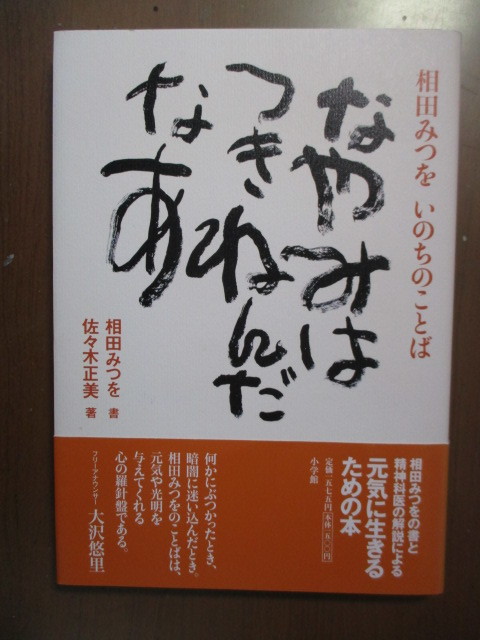 相田みつを いのちのことば
なやみは
つきねんだ
なあ
相田みつを 書
佐々木正美 著
相田みつをの書と
精神科医の解説による
元気に生きる
ための本
定価一五七五円（本体一五〇〇円）
小学館
何かにぶつかったとき、
暗闇に迷い込んだとき。
相田みつをのことばは、
元気や光明を
与えてくれる
心の羅針盤である。
フリーアナウンサー 大沢悠里